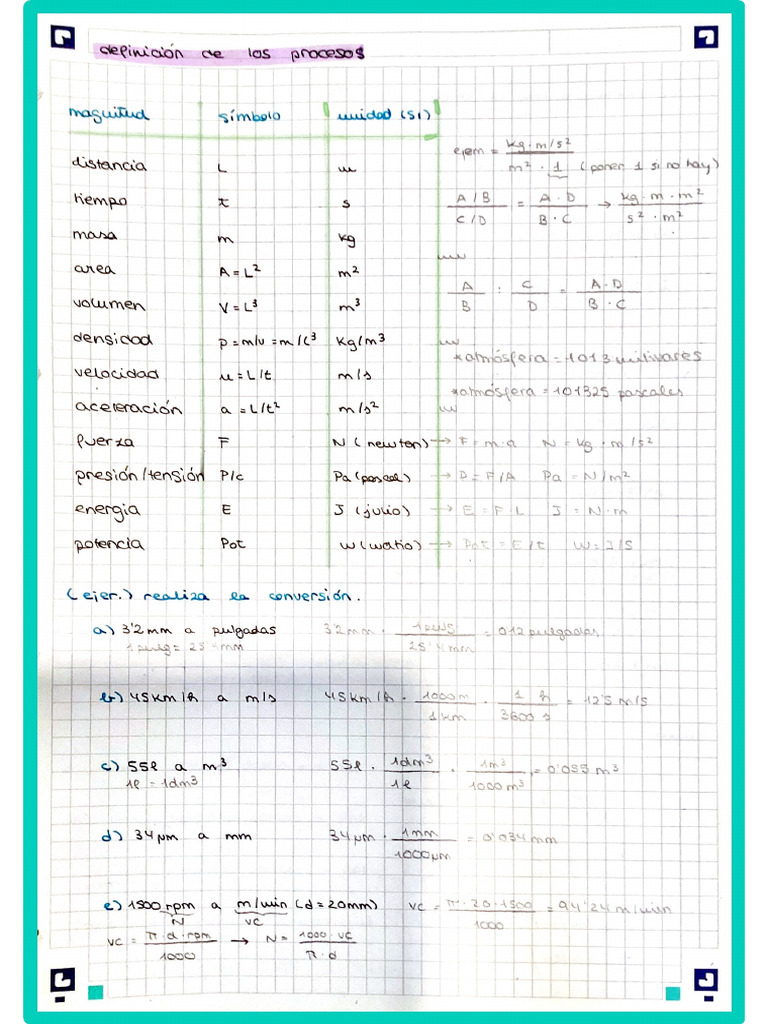 definición de los procesos
magnitud símbolo unidad (SI)
distancia L m
tiempo t s
masa m kg
area A = L² m²
volumen V = L³ m³
densidad ρ = m/v = m/L³ kg/m³
velocidad u = L/t m/s
aceleración a = L/t² m/s²
fuerza F N (newton) → F = m·a N = kg · m/s²
presión/tensión P/c Pa (pascal) → P = F/A Pa = N/m²
energia E J (julio) → E = F·L J = N·m
potencia Pot W (watio) → Pot = E/t W = J/S
ejem = kg·m/s² / m² · 1 (poner 1 si no hay)
A/B / C/D = A·D / B·C → kg·m·m² / s²·m²
A/B : C/D = A·D / B·C
*atmósfera = 1013 milivares
*atmósfera = 101325 pascales
(ejer.) realiza la conversión.
a) 3'2mm a pulgadas 3'2mm · 1 pulg / 25'4mm = 0'12 pulgadas
1 pulg = 25'4mm
b) 45km/h a m/s 45km/h · 1000m / 1km · 1 h / 3600 s = 12'5 m/s
c) 55l a m³ 55l · 1dm³ / 1l · 1m³ / 1000m³ = 0'055 m³
1l = 1dm³
d) 34μm a mm 34μm · 1mm / 1000μm = 0'034mm
e) 1500 rpm a m/min (d = 20mm) VC = π·20·1500 / 1000 = 94'24 m/min
N VC
VC = π·d·rpm / 1000 → N = 1000·VC / π·d